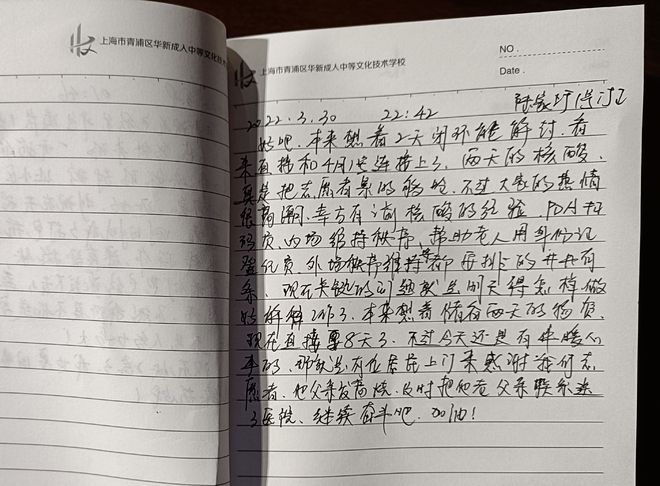 上海市青浦区华新成人中等文化技
上海市青浦区华新成人中等文化技术学校
NO.
Date.
2022.3.30 22:42
好吧.本来想着2天闭环能解封.看
来直接和4月1号连接上了.两天的核酸、
真是把志愿者累的够呛.不过大家的热情
很高涨.幸亏有前核酸的经验.PDA扫
码员.内场维持秩序、帮助老人用身份证
登记员.外场秩序维持等都安排的井井有
条.现在关键的问题就是明天得怎样做
好解释工作了.本来想着储备两天的物资、
现在直接要8天了.不过今天还是有件暖心
事的.那就是有位居民上门来感谢我们志
愿者.他父亲发高烧.及时把他老父亲联系送
了医院、继续奋斗吧.加油!